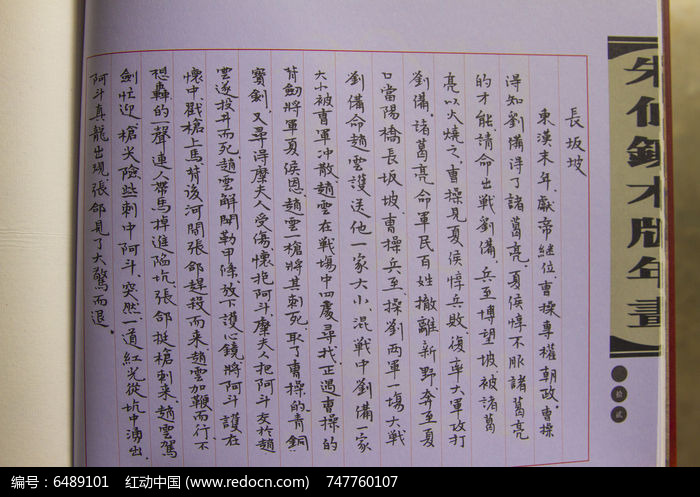 朱仙鎮木版年畫
拾貳
長坂坡
東漢末年，獻帝継位，曹操專權朝政，曹操
得知劉備得了諸葛亮，夏侯惇不服諸葛亮
的才能，請命出戰劉備，兵至博望坡，被諸葛
亮以火燒之，曹操見夏侯惇兵敗，復率大軍攻打
劉備，諸葛亮命軍民百姓撤離新野，奔至夏
口當陽橋長坂坡，曹操兵至，操劉两軍一塲大戦
劉備命趙雲護送他一家大小，混戦中劉備一家
大小被曹軍冲散，趙雲在戦塲中四處尋找，正遇曹操的
背劍將軍夏侯恩，趙雲一槍將其刺死，取了曹操的青銅
寳劍，又尋得糜夫人受傷懷抱阿斗，糜夫人把阿斗交扵趙
雲遂投井而死，趙雲解開勒甲條，放下護心鏡將阿斗護在
懷中，戳槍上馬，背後河間張郃趕殺而来，趙雲加鞭而行，不
想轟的一聲，連人帶馬掉進陷坑，張郃挺槍刺来，趙雲駕
劍忙迎，槍尖險些刺中阿斗，突然一道紅光從坑中湧出，
阿斗真龍出現，張郃見了大驚而退。
编号：6489101 红动中国 (www.redocn.com) 747760107